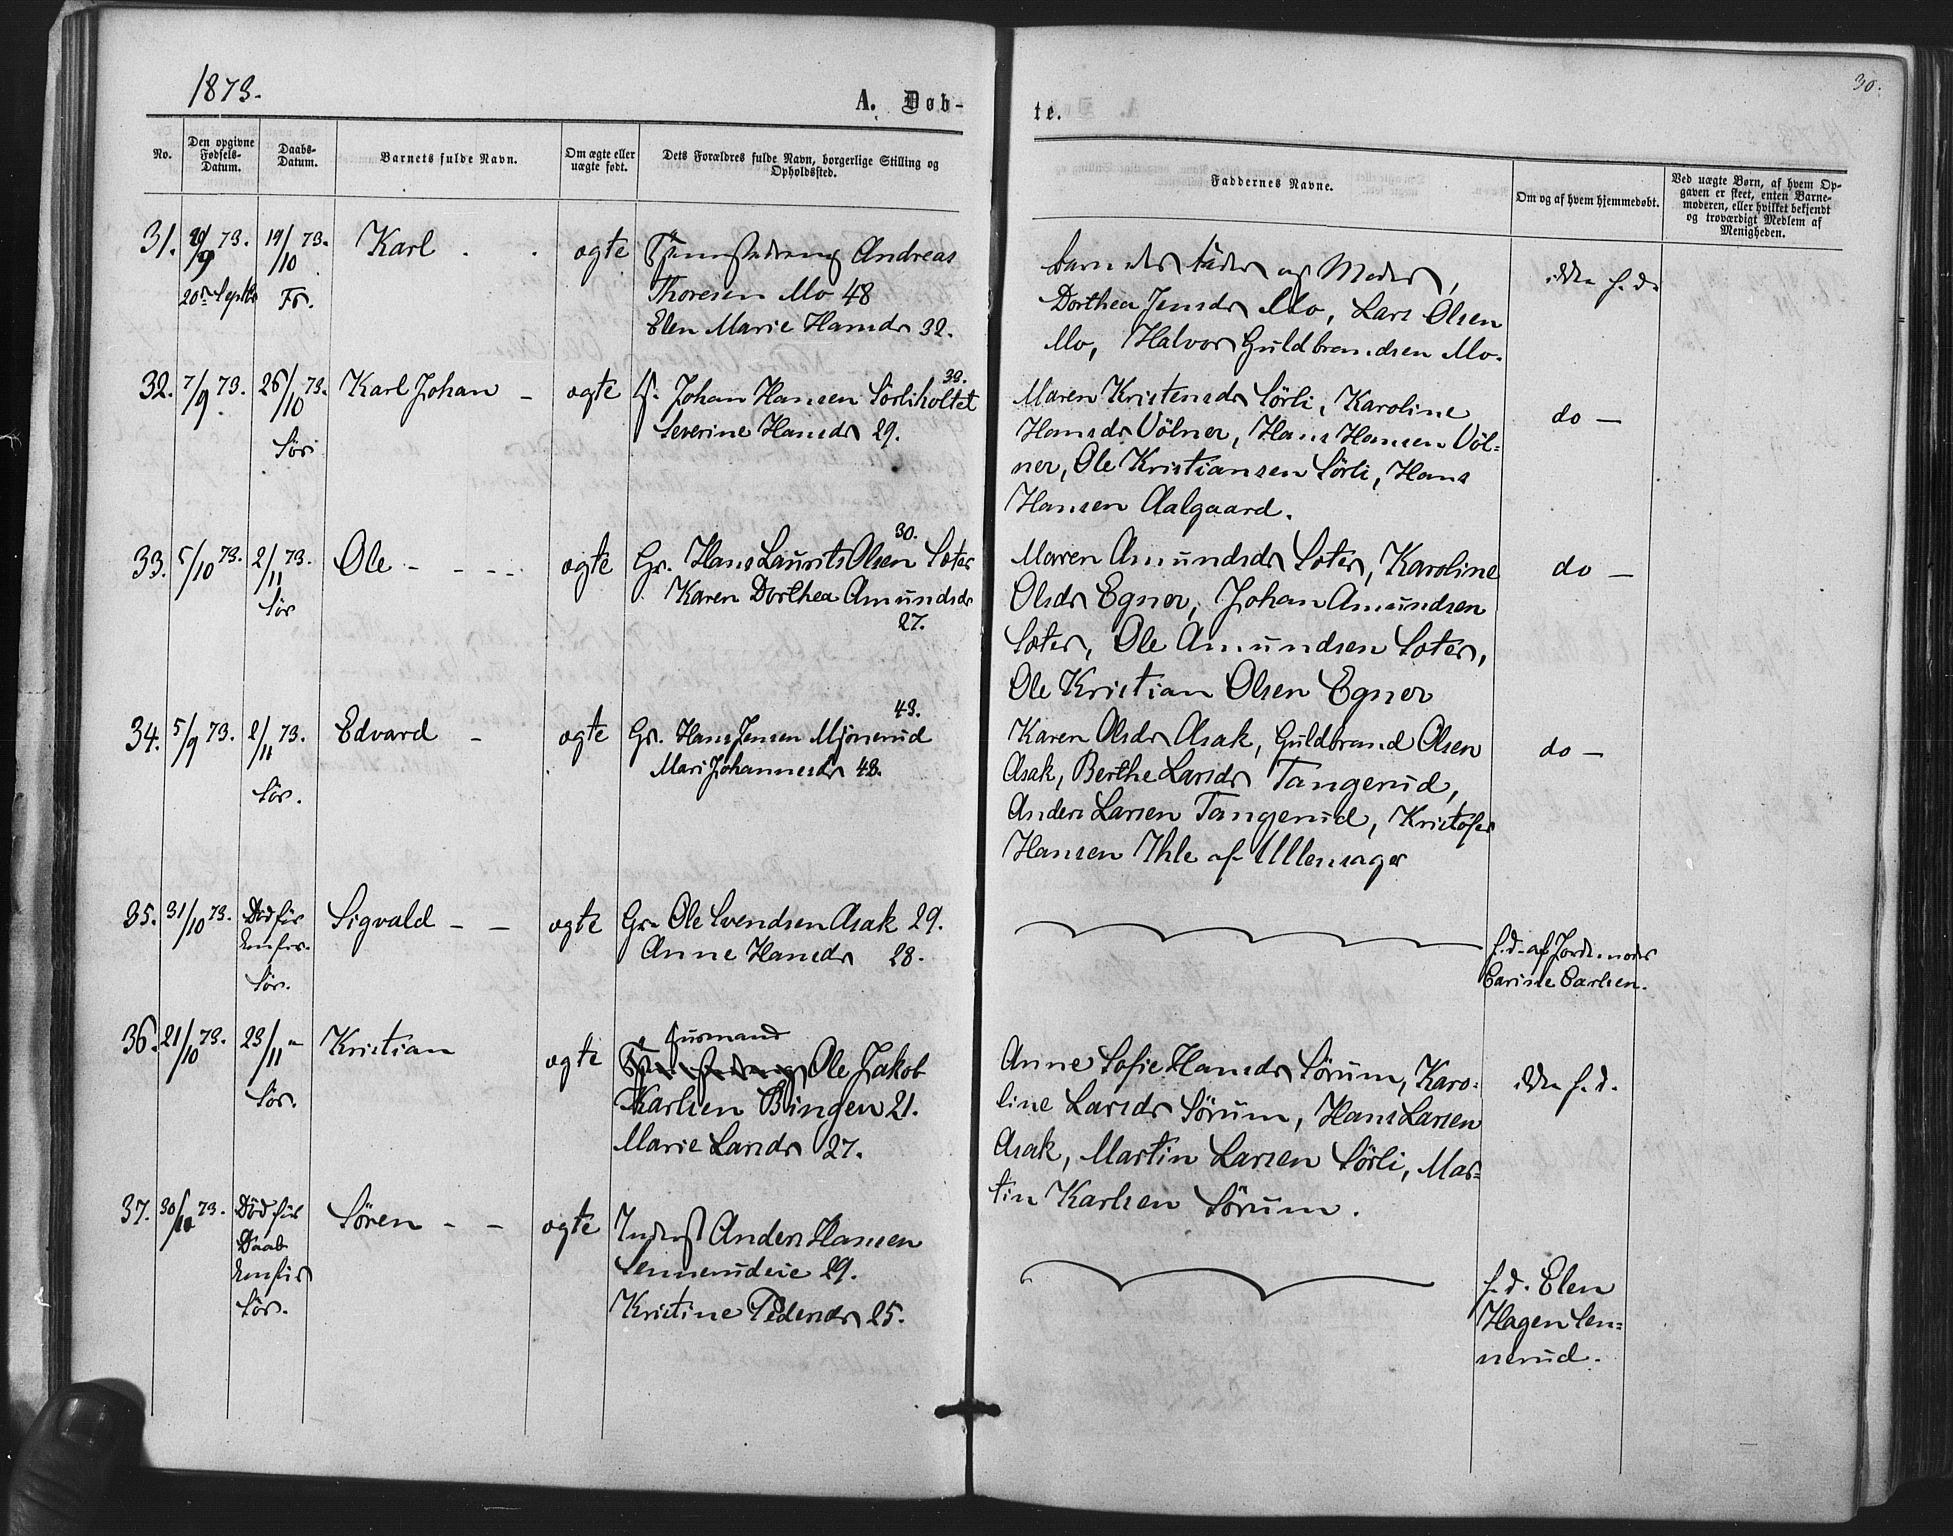 1873.
A. Døb-
No.
Den opgivne Fødsels-Datum.
Daabs-Datum.
Barnets fulde Navn.
Om ægte eller uægte født.
Dets Forældres fulde Navn, borgerlige Stilling og Opholdssted.
31. 20/9 73. 19/10 73. Karl ægte Andreas
20de Septbr Fr. Thoresen Mo 48
Elen Marie Hansdr 32.
32. 7/9 73. 26/10 73. Karl Johan ægte Johan Hansen Sörliholtet 33.
Sör Severine Hansdr 29.
33. 5/10 73. 2/11 73. Ole ægte Gr. Hans Laurits Olsen Sæter 30.
Sör Karen Dorthea Amundsdr
27.
34. 5/9 73. 2/11 73. Edvard ægte Gr. Hans Jensen Mjönerud 43.
Sör. Mari Johannesdr 43.
35. 31/10 73. Död för Sigvald ægte Gr. Ole Svendsen Asak 29.
Anne Hansdr 28.
Sör.
36. 21/10 73. 23/11 " Kristian ægte Husmand
Ole Jakob
Sör. Karlsen Bingen 21.
Marie Larsdr 27.
37. 30/10 73. Död för Sören ægte Inderst Anders Hansen
Daab Sennerudeie 29.
Sör. Kristine Pedersdr 25.
30.
te.
Faddernes Navne.
Om og af hvem hjemmedøbt.
Ved uægte Børn, af hvem Op-
gaven er skeet, enten Barne-
moderen, eller hvilket bekjendt
og troværdigt Medlem af
Menigheden.
Barnets Fader og Moder, ikke h. d.
Dorthea Jensdr Mo, Lars Olsen
Mo, Halvor Guldbrandsen Mo.
Maren Kristensdr Sörli, Karoline do —
Hansdr Völner, Hans Hansen Völ=
ner, Ole Kristiansen Sörli, Hans
Hansen Aalgaard.
Maren Amundsdr Sæter, Karoline do —
Olsdr Egner, Johan Amundsen
Sæter, Ole Amundsen Sæter,
Ole Kristian Olsen Egner
Karen Olsdr Asak, Guldbrand Olsen do —
Asak, Berthe Larsdr Tangerud,
Anders Larsen Tangerud, Kristofer
Hansen Ihle af Ullensager
h. d. af Jordemoder
Carine Carlsen.
Anne Sofie Hansdr Sörum, Karo- ikke h. d.
line Larsdr Sörum, Hans Larsen
Asak, Martin Larsen Sörli, Mar=
tin Karlsen Sörum.
h. d. Elen
Hagen Sen=
nerud.